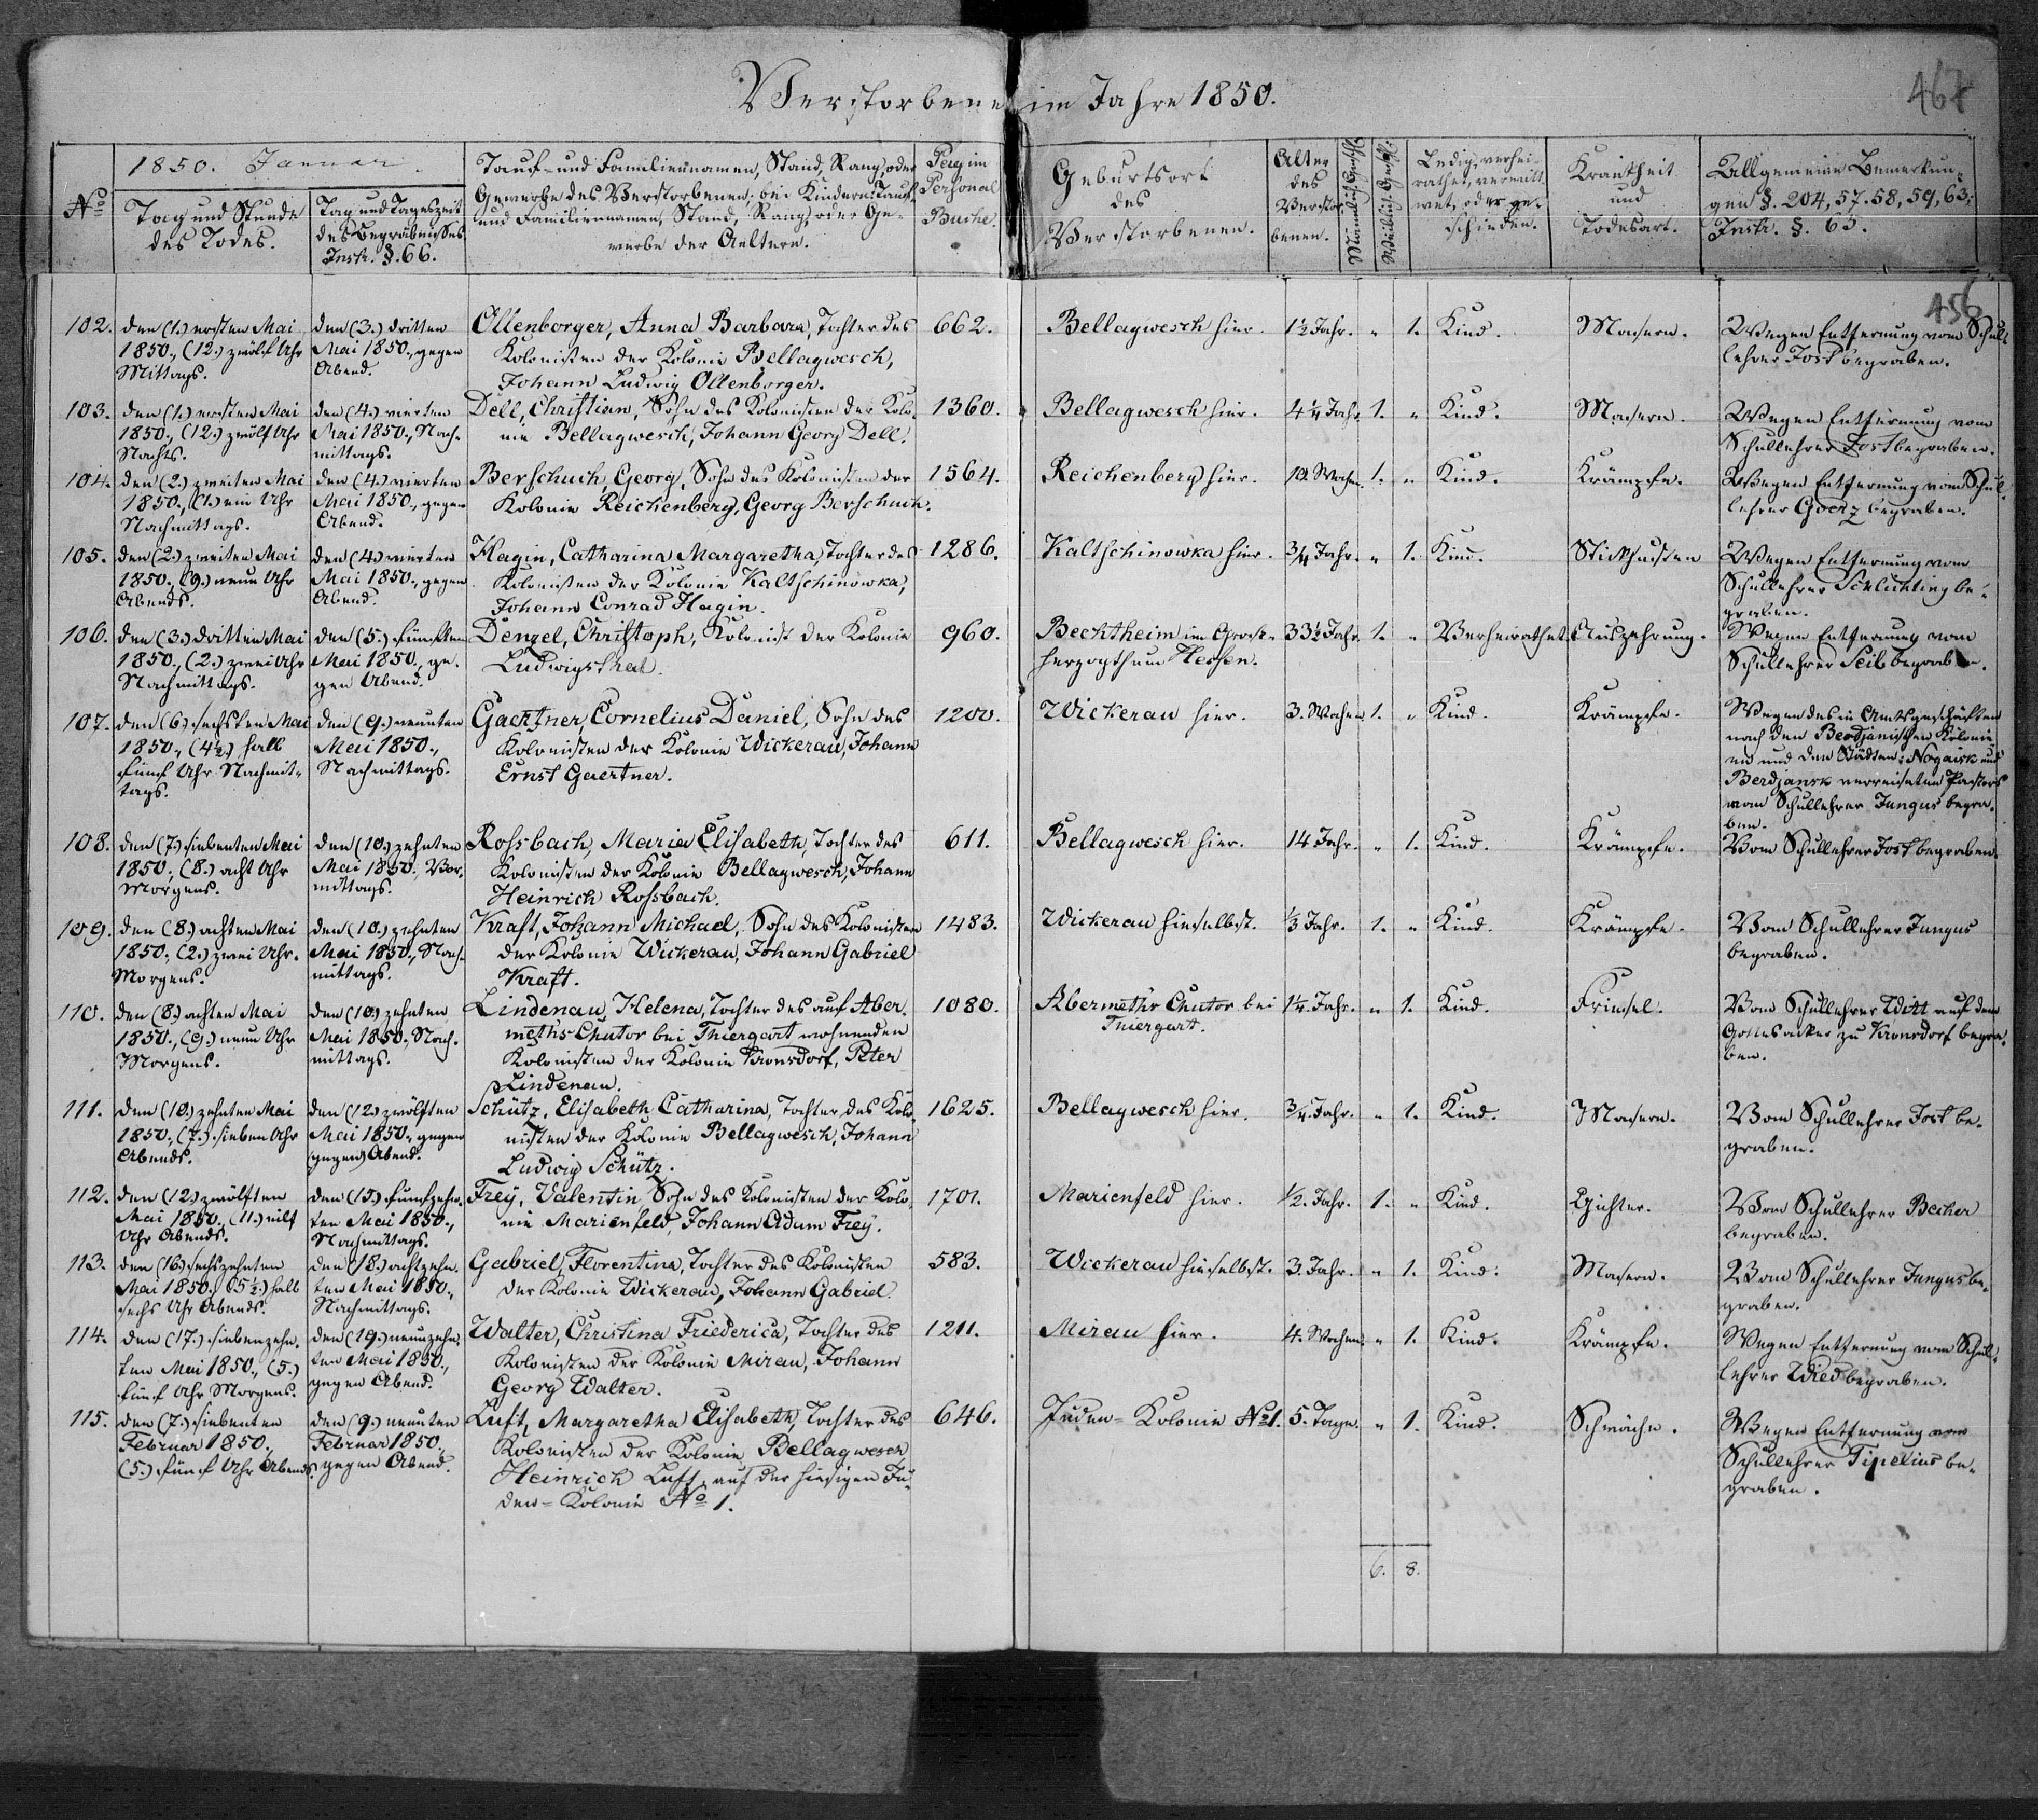 Verstorbene im Jahre 1850.
467
1850. Januar
No
Tag und Stunde
des Todes.
Tag und Tageszeit
des Begräbnisses
Instr. §. 66.
Tauf- und Familiennamen, Stand, Rang, oder
Gewerbe des Verstorbenen; bei Kindern: Tauf-
und Familiennamen, Stand, Rang, oder Ge-
werbe der Aeltern.
Pag im
Personal
Buche.
Geburtsort
des
Verstorbenen.
Alter
des
Verstor-
benen.
Männlich. Geschl.
Weiblich. Geschl.
Ledig, verhei-
rathet, verwitt-
wet, oder ge-
schieden.
Krankheit
und
Todesart.
Allgemeine Bemerkun-
gen §. 204, 57. 58, 59, 63;
Instr. §. 65.
456
102.
den (1.) ersten Mai
1850., (12.) zwölf Uhr
Mittags.
den (3.) dritten
Mai 1850., gegen
Abend.
Ollenborger, Anna Barbara, Tochter des
Kolonisten der Kolonie Bellagwesch,
Johann Ludwig Ollenborger.
662.
Bellagwesch hier.
1½ Jahr.
"
1.
Kind.
Masern.
Wegen Entfernung vom Schul-
lehrer Jost begraben.
103.
den (1.) ersten Mai
1850., (12.) zwölf Uhr
Nachts.
den (4.) vierten
Mai 1850., Nach-
mittags.
Dell, Christian, Sohn des Kolonisten der Kolo-
nie Bellagwesch, Johann Georg Dell.
1360.
Bellagwesch hier.
4¼ Jahr.
1.
"
Kind.
Masern.
Wegen Entfernung vom
Schullehrer Jost begraben.
104.
den (2.) zweiten Mai
1850., (1.) ein Uhr
Nachmittags.
den (4.) vierten
Mai 1850., gegen
Abend.
Berschuch, Georg, Sohn des Kolonisten der
Kolonie Reichenberg, Georg Berschuch.
1564.
Reichenberg hier.
Wochen.
1.
"
Kind.
Krämpfe.
Wegen Entfernung vom Schul-
lehrer Goerz begraben.
105.
den (2.) zweiten Mai
1850., (9.) neun Uhr
Abends.
den (4.) vierten
Mai 1850., gegen
Abend.
Hagin, Catharina Margaretha, Tochter des
Kolonisten der Kolonie Kaltschinowka,
Johann Conrad Hagin.
1286.
Kaltschinowka hier.
¾ Jahr.
"
1.
Kind.
Stickhusten
Wegen Entfernung vom
Schullehrer Schlichting be-
graben.
106.
den (3.) dritten Mai
1850., (2.) zwei Uhr
Nachmittags.
den (5.) fünften
Mai 1850., ge-
gen Abend.
Denzel, Christoph, Kolonist der Kolonie
Ludwigsthal.
960.
Bechtheim im Gross-
herzogthum Hessen.
33½ Jahr.
1.
"
Verheirathet.
Auszehrung.
Wegen Entfernung vom
Schullehrer Seib begraben.
107.
den (6.) sechsten Mai
1850., (4½.) halb
fünf Uhr Nachmit-
tags.
den (9.) neunten
Mai 1850.,
Nachmittags.
Gaertner, Cornelius Daniel, Sohn des
Kolonisten der Kolonie Wickerau, Johann
Ernst Gaertner.
1200.
Wickerau hier.
3. Wochen.
1.
"
Kind.
Krämpfe.
Wegen des in Amtsgeschäften
nach den Berdjanischen Kolonie-
en und den Städten: Nogaisk und
Berdjansk verreiseten Pastors
vom Schullehrer Jungus begra-
ben.
108.
den (7.) siebenten Mai
1850., (8.) acht Uhr
Morgens.
den (10.) zehnten
Mai 1850., Vor-
mittags.
Rossbach, Maria Elisabeth, Tochter des
Kolonisten der Kolonie Bellagwesch, Johann
Heinrich Rossbach.
611.
Bellagwesch hier.
14 Jahr.
"
1.
Kind.
Krämpfe.
Vom Schullehrer Jost begraben.
109.
den (8.) achten Mai
1850., (2.) zwei Uhr
Morgens.
den (10.) zehnten
Mai 1850., Nach-
mittags.
Kraft, Johann Michael, Sohn des Kolonisten
der Kolonie Wickerau, Johann Gabriel
Kraft.
1483.
Wickerau hieselbst.
⅓ Jahr.
1.
"
Kind.
Krämpfe.
Vom Schullehrer Jungus
begraben.
110.
den (8.) achten Mai
1850., (9.) neun Uhr
Morgens.
den (10.) zehnten
Mai 1850., Nach-
mittags.
Lindenau, Helena, Tochter des auf Aber-
meths-Chutor bei Thiergart wohnenden
Kolonisten der Kolonie Kronsdorf, Peter
Lindenau.
1080.
Abermeth's Chutor bei
Thiergart.
1¼ Jahr.
"
1.
Kind.
Friesel.
Vom Schullehrer Witt auf dem
Gottesacker zu Kronsdorf begra-
ben.
111.
den (10.) zehnten Mai
1850., (7.) sieben Uhr
Abends.
den (12.) zwölften
Mai 1850., gegen
(gegen) Abend.
Schütz, Elisabeth Catharina, Tochter des Kolo-
nisten der Kolonie Bellagwesch, Johann
Ludwig Schütz.
1625.
Bellagwesch hier.
¾ Jahr.
"
1.
Kind.
Masern.
Vom Schullehrer Jost be-
graben.
112.
den (12.) zwölften
Mai 1850., (11.) eilf
Uhr Abends.
den (15.) fünfzehn-
ten Mai 1850.,
Nachmittags.
Frey, Valentin, Sohn des Kolonisten der Kolo-
nie Marienfeld, Johann Adam Frey.
1701.
Marienfeld hier.
½. Jahr.
1.
"
Kind.
Gichter.
Vom Schullehrer Becher
begraben.
113.
den (16.) sechszehnten
Mai 1850., (5½.) halb
sechs Uhr Abends.
den (18.) achtzehn-
ten Mai 1850.,
Nachmittags.
Gabriel, Florentina, Tochter des Kolonisten
der Kolonie Wickerau, Johann Gabriel.
583.
Wickerau hieselbst.
3. Jahr.
"
1.
Kind.
Masern.
Vom Schullehrer Jungus be-
graben.
114.
den (17.) siebenzehn-
ten Mai 1850., (5.)
fünf Uhr Morgens.
den (19.) neunzehn-
ten Mai 1850.,
gegen Abend.
Walter, Christina Friederica, Tochter des
Kolonisten der Kolonie Mirau, Johann
Georg Walter.
1211.
Mirau hier.
4. Wochen.
"
1.
Kind.
Krämpfe.
Wegen Entfernung vom Schul-
lehrer Wied begraben.
115.
den (7.) siebenten
Februar 1850.,
(5.) fünf Uhr Abends.
den (9.) neunten
Februar 1850.,
gegen Abend.
Luft, Margaretha Elisabeth, Tochter des
Kolonisten der Kolonie Bellagwesch
Heinrich Luft, auf der hiesigen Ju-
den-Kolonie No 1.
646.
Juden-Kolonie No 1.
5. Tage.
"
1.
Kind.
Schwäche.
Wegen Entfernung vom
Schullehrer Tipelius be-
graben.
6.
8.